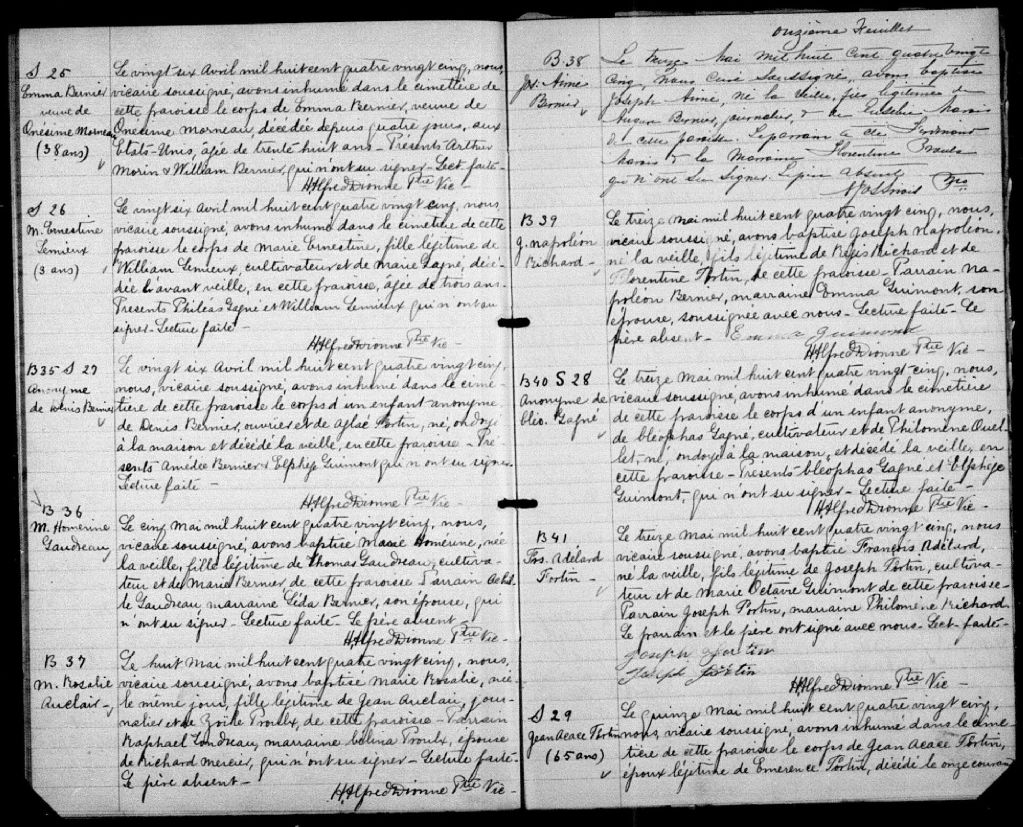 S 25
Emma Bernier
veuve de
Onésime Morneau
(38 ans)
Le vingt six Avril mil huit cent quatre vingt cinq, nous,
vicaire soussigné, avons inhumé dans le cimetière de
cette paroisse le corps de Emma Bernier, veuve de
Onésime Morneau, décédée depuis quatre jours, aux
Etats-Unis, âgée de trente huit ans - Présents Arthur
Morin & William Bernier, qui n'ont su signer - Lect. faite -
H. Alfred Dionne Ptre Vic -
S 26
M. Ernestine
Lemieux
(3 ans)
Le vingt six Avril mil huit cent quatre vingt cinq, nous,
vicaire soussigné, avons inhumé dans le cimetière de cette
paroisse le corps de Marie Ernestine, fille légitime de
William Lemieux, cultivateur et de Marie Gagné, décé-
dée l'avant veille, en cette paroisse, âgée de trois ans -
Présents Philéas Gagné et William Lemieux qui n'ont su
signer - Lecture faite -
H. Alfred Dionne Ptre Vic -
B35 S 27
Anonyme
de Denis Bernier
Le vingt six Avril mil huit cent quatre vingt cinq,
nous, vicaire soussigné, avons inhumé dans le cime-
tière de cette paroisse le corps d'un enfant anonyme
de Denis Bernier, ouvrier et de Aglaé Fortin, né, ondoyé
à la maison et décédé la veille, en cette paroisse - Pré
sents Amédée Bernier & Elphège Guimont qui n'ont su signer.
Lecture faite -
H. Alfred Dionne Ptre Vic -
B 36
M. Homérine
Gaudreau
Le cinq Mai mil huit cent quatre vingt cinq, nous,
vicaire soussigné, avons baptisé Marie Homérine, née
la veille, fille légitime de Thomas Gaudreau, cultiva-
teur et de Marie Bernier de cette paroisse Parrain Achil-
le Gaudreau marraine Léda Bernier, son épouse, qui
n'ont su signer - Lecture faite - Le père absent -
H. Alfred Dionne Ptre Vic -
B 37
M. Rosalie
Auclair -
Le huit Mai mil huit cent quatre vingt cinq, nous,
vicaire soussigné, avons baptisé Marie Rosalie, née
le même jour, fille légitime de Jean Auclair, jour-
nalier et de Zoïle Proulx, de cette paroisse - Parrain
Raphael Tondreau, marraine Célina Proulx, épouse
de Richard Mercier, qui n'ont su signer - Lecture faite -
Le père absent -
H. Alfred Dionne Ptre Vic -
onzième Feuillet
B. 38
Jos. Aimé
Bernier
Le treize Mai mil huit cent quatre vingt
cinq, nous Curé soussigné, avons baptisé
Joseph Aimé, né la veille, fils légitime de
Bernier, journalier, & de
de cette paroisse. Le parrain a été
& la Marraine Florentine
qui n'ont su signer. Le père absent
Ptre
B 39
J. Napoléon
Richard -
Le treize Mai mil huit cent quatre vingt cinq, nous,
vicaire soussigné, avons baptisé Joseph Napoléon,
né la veille, fils légitime de Régis Richard et de
Florentine Fortin, de cette paroisse - Parrain Na-
poléon Bernier, marraine Emma Guimont, son
épouse, soussignée avec nous - Lecture faite - Le
père absent - Emma Guimond
H. Alfred Dionne Ptre Vic -
B40 S 28
Anonyme de
Cléo. Gagné
Le treize Mai mil huit cent quatre vingt cinq, nous,
vicaire soussigné, avons inhumé dans le cimetière
de cette paroisse le corps d'un enfant anonyme,
de Cléophas Gagné, cultivateur et de Philomène Ouel-
let, né, ondoyé à la maison, et décédé la veille, en
cette paroisse - Présents Cléophas Gagné et Elphège
Guimont, qui n'ont su signer - Lecture faite -
H. Alfred Dionne Ptre Vic -
B 41
Frs. Adélard
Fortin -
Le treize Mai mil huit cent quatre vingt cinq, nous
vicaire soussigné, avons baptisé François Adélard,
né la veille, fils légitime de Joseph Fortin, cultiva-
teur et de Marie Octavie Guimont de cette paroisse -
Parrain Joseph Fortin, marraine Philomène Richard.
Le parrain et le père ont signé avec nous - Lect. faite -
Joseph Fortin
Joseph Fortin
H. Alfred Dionne Ptre Vic -
S 29
Jean Acace Fortin
(65 ans)
Le quinze Mai mil huit cent quatre vingt cinq,
nous, vicaire soussigné, avons inhumé dans le cime-
tière de cette paroisse le corps de Jean Acace Fortin,
époux légitime de Emérence Fortin, décédé le onze courant